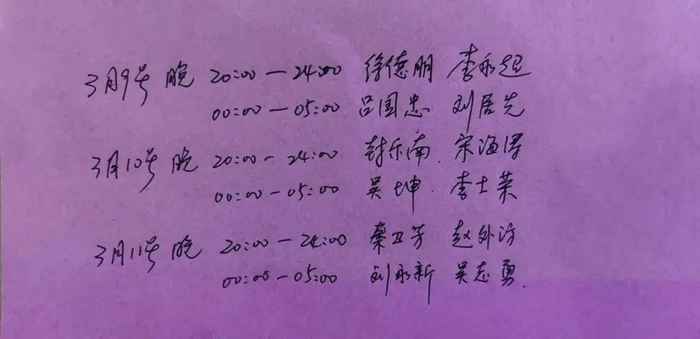 3月9号 晚 20:00—24:00 徐德朋 李永起
00:00—05:00 吕国忠 刘居先
3月10号 晚 20:00-24:00 封乐南 宋海
00:00-05:00 吴坤 李士荣
3月11号 晚 20:00—24:00 秦卫芳 赵外
00:00-05:00 刘永新 吴志勇